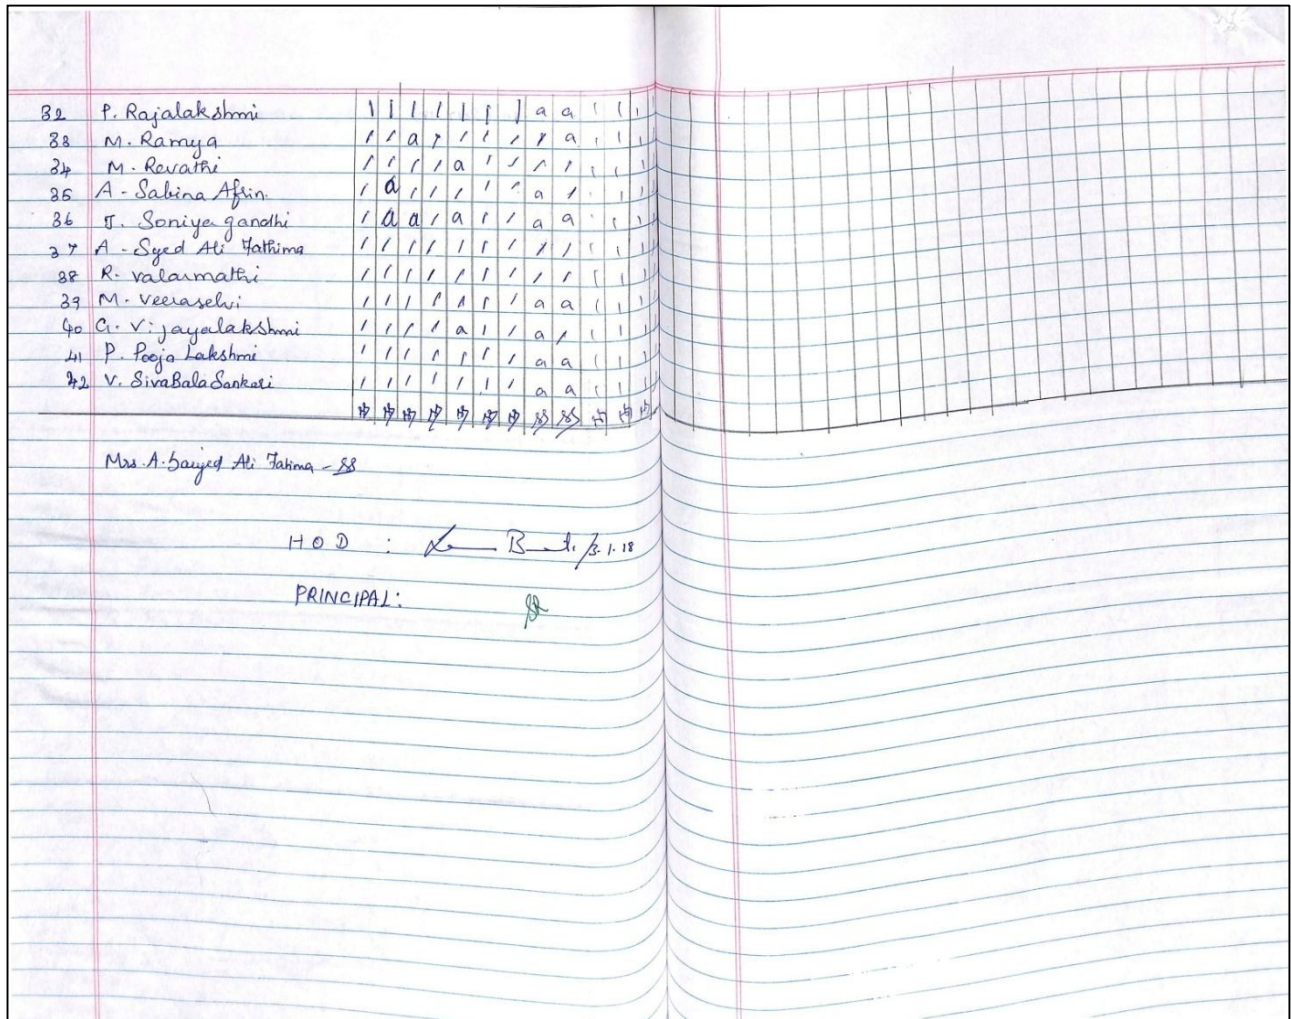 32 P. Rajalakshmi / / / / / / / a a / / /
33 M. Ramya / / a / / / / / a / / /
34 M. Revathi / / / / a / / / / / / /
35 A. Sabina Afrin. / a / / / / / a / / / /
36 J. Soniya gandhi / a a / a / / a a / / /
37 A. Syed Ali Fathima / / / / / / / / / / / /
38 R. valarmathi / / / / / / / / / / / /
39 M. Veeraselvi / / / / / / / a a / / /
40 G. Vijayalakshmi / / / / a / / a / / / /
41 P. Pooja Lakshmi / / / / / / / a a / / /
42 V. SivaBala Sankari / / / / / / / a a / / /
Mrs. A. Saiyed Ali Fatima - SS
HOD : 3.1.18
PRINCIPAL: